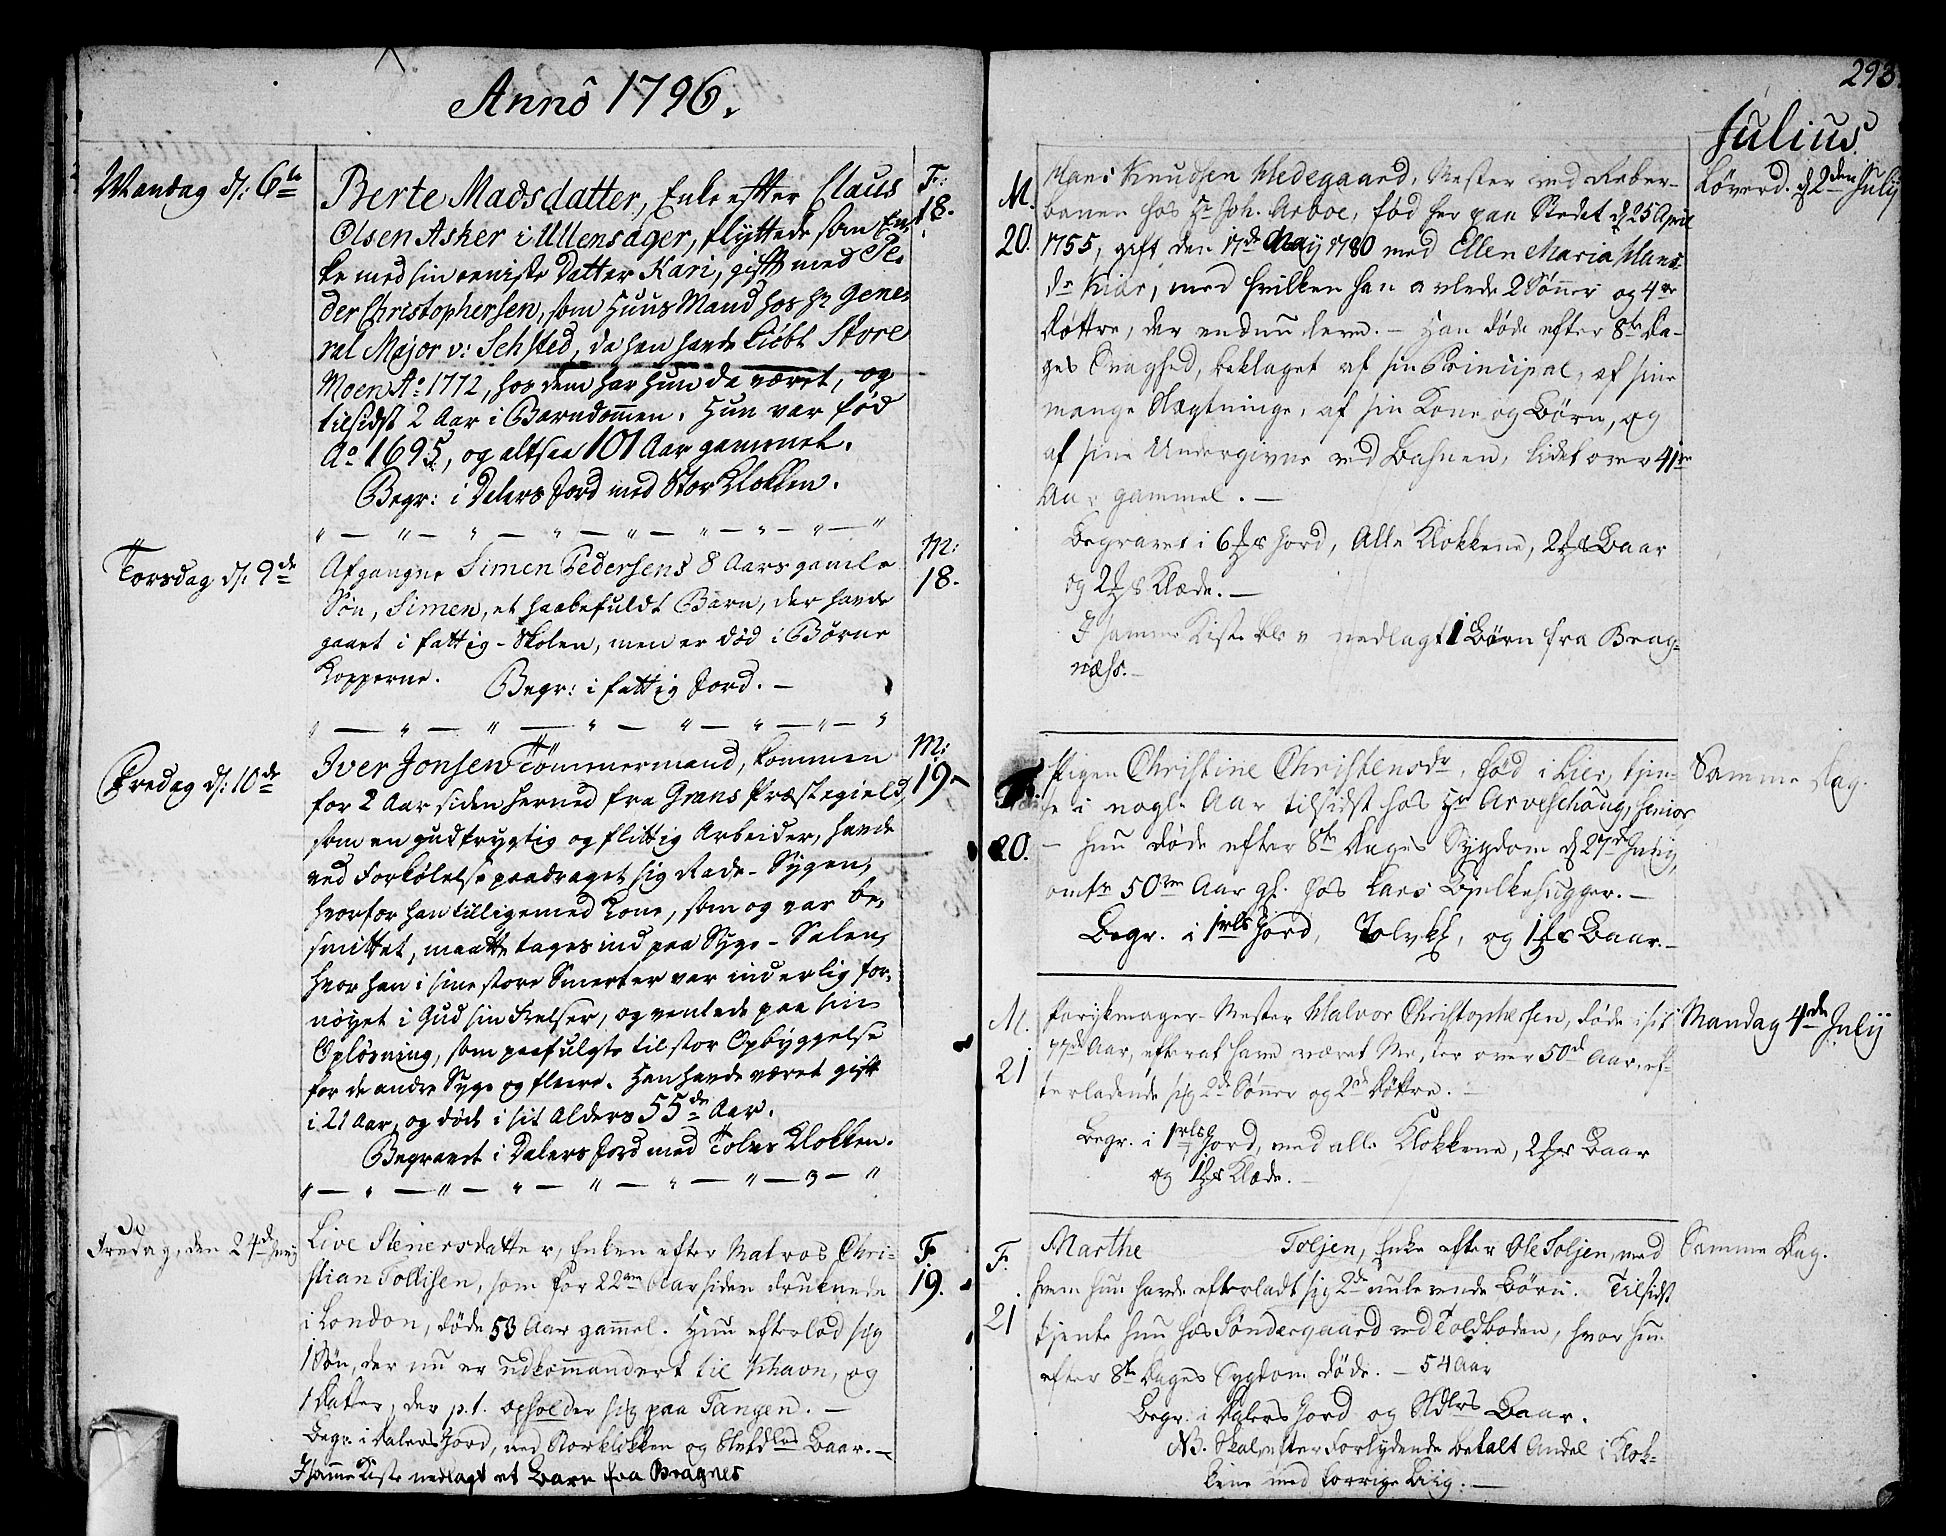 Anno 1796.
Mandag d: 6te
Berte Madsdatter, Enke efter Claus
F: 18.
Olsen Asker i Ullensager, flyttede som En-
ke med sin eeniste Datter Kari, gift med Pe-
der Christophersen, som Huus Mand hos Hr Gene-
ral Major v: Sehsted, da han havde kiøbt Store
Moen Ao 1772, hos dem har hun da været, og
tilsidst 2 Aar i Barndommen. Hun var fød
Ao 1695, og altsaa 101 Aar gammel.
Begr: i Dalers Jord med Stor Klokken.
Torsdag d: 9de
Afgangne Simen Pedersens 8 Aars gamle
M: 18.
Søn, Simen, et haabefuldt Barn, der havde
gaaet i fattig-Skolen, men er død i Børne
Kopperne.
Begr: i fattig Jord.
Fredag d: 10de
Iver Jonsen Tømmermand, kommen
M: 19
for 2 Aar siden herned fra Grans Præstegield,
som en gudfrygtig og flittig Arbeider, havde
ved Forkølelse paadraget sig Rade-Sygen,
hvorfor han tilligemed Kone, som og var be-
smittet, maatte tages ind paa Syge-Salen,
hvor han i sine store Smerter var inderlig for-
nøyet i Gud sin Frelser, og ventede paa sin
Opløsning, som paafulgte til stor Opbyggelse
for de andre Syge og fleere. Han havde været gift
i 21 Aar, og døde i sit Alders 55de Aar.
Begravet i Dalers Jord med Tolv Klokken.
Fredag, den 24de Juny
Live Stenersdatter, Enken efter Matros Chri-
F. 19.
stian Tollisen, som for 22 Aar siden druknede
i London, døde 53 Aar gammel. Hun efterlod sig
1 Søn, der nu er udkommandert til Khavn, og
1 Datter, der p.t. opholder sig paa Tangen.
Begr. i Dalers Jord, med Storklokken og Baar.
I samme Kiste nedlagt et Barn fra Bragnes
293
Julius
Løverd. d 2den Julij
M. 20.
Hans Knudsen Hedegaard, Mester ved Reber-
banen hos Hr Joh. Arboe, fød her paa Stedet d 25 April
1755, gift den 17de May 1780 med Ellen Maria Hans-
dr Kiær, med hvilken han avlede 2 Sønner og 4re
Døttre, der endnu leve. — Han døde efter 8te Da-
ges Svaghed, beklaget af sin Principal, af sine
mange Slægtninge, af sin Kone og Børn, og
af sine Undergivne ved Bahnen, lidet over 41
Aar gammel.
Begravet i 6 Jord, Alle Klokkene, 2 Baar
og 2 Klæde.
I samme Kiste blev nedlagt 1 Børn fra Brag-
næs.
Samme Dag.
20.
Pigen Christine Christensdr, fød i Lier, tjen-
te i nogle Aar tilsidst hos Hr Arveschoug, senior,
— hun døde efter 8te Dages Sygdom d 27de Junij,
omtr 50 Aar gl. hos Lars Bjelkehugger.
Begr. i 1rls Jord, Tolvkl, og 1 Baar.
Mandag 4rde Julij
M. 21
Parykmager-Mester Halvor Christophersen, døde i sit
77de Aar, efter at have været Mester over 50 Aar, ef-
terladende sig 2de Sønner og 2de Døttre.
Begr. i 1rls Jord, med alle Klokkene, 2 Baar
og 1 Klæde.
Samme Dag.
F. 21
Marthe Toljen, Enke efter Ole Toljen, med
hvem hun havde efterladt sig 2de nulevende Børn. Tilsidst
tjente hun hos Søndergaard ved Toldboden, hvor hun
efter 8te Dages Sygdom døde. — 54 Aar
Begr. i Dalers Jord og Baar.
NB. Skal, efter Forlydende betalt Andel i Klok-
kene med